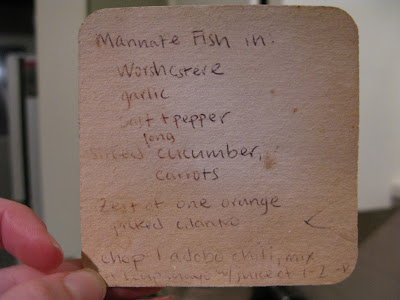 Marinate Fish in:
Worshestere
garlic
salt + pepper
long
sliced cucumber,
carrots
Zest of one orange
picked cilantro
chop 1 adobe chili, mix
mayo w/ juice of 1-2